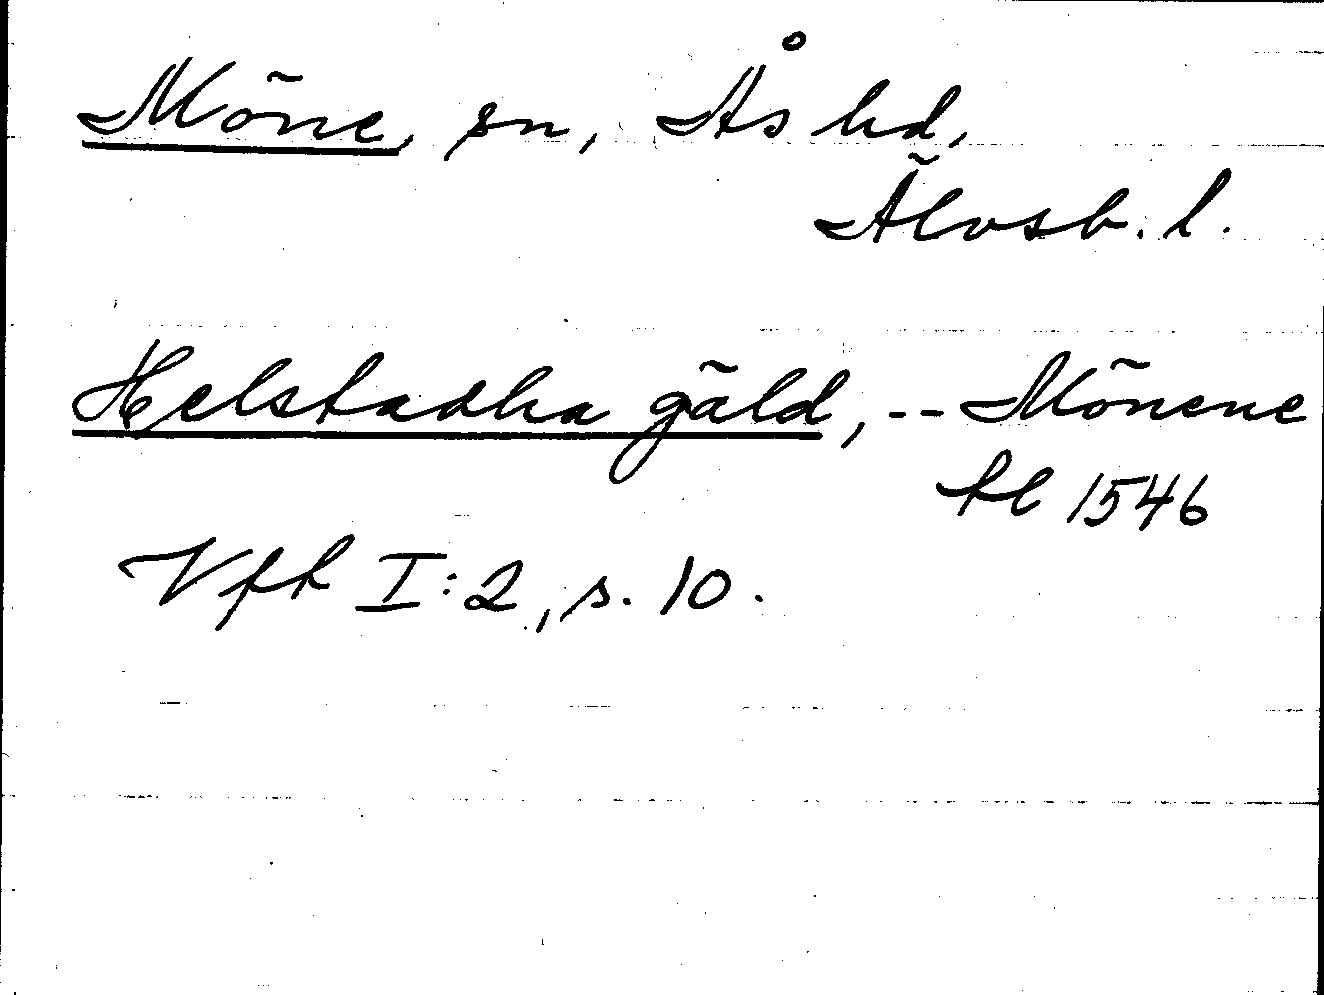 Möne, sn, Ås hd,
Älvsb. l.
Helstadha gäld, -- Mönene
fl 1546
Vft I:2, s. 10.